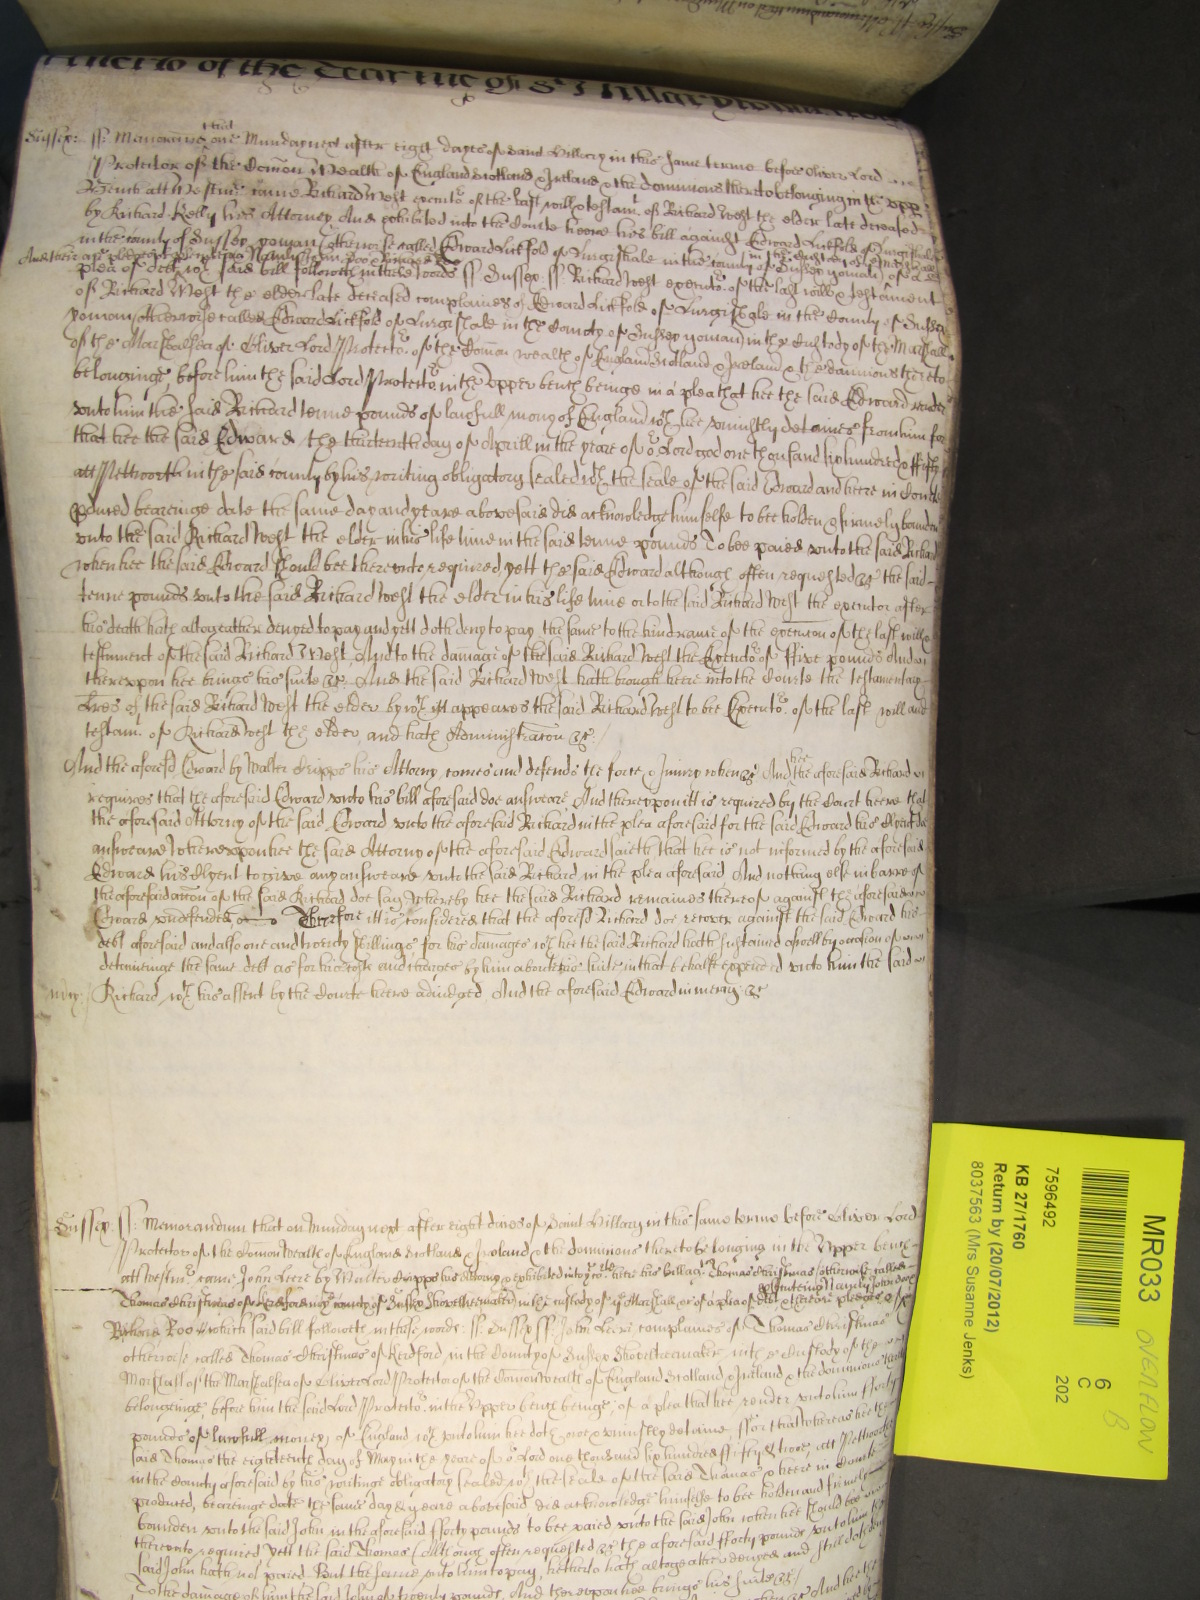 of the Tearme of St Hillary
Sussex: ss: Memorand that one Munday next after eight dayes of Saint Hillary in this same terme before Oliver Lord
Protector of the Com̄on Wealth of England Scotland & Ireland & the dominions thereto belonging in the upp
Bench att Westmr came Richard West executor of the last will & testamt of Richard West the elder late deceased
by Richard Kelly his Attorney And exhibited into the Courte heere his bill against Edward Lickfold of Lurgishale
in the county of Sussex yoman otherwise called Edward Lickfold of Lurgishale in the county of Sussex yoman in the custody of the Marshall
And there are pledges of
plea of debt wch said bill followeth in these words ss: Sussex: ss: Richard West executor of the last will & testament
of Richard West the elder late deceased complaines of Edward Lickfold of Lurgishale in the County of Sussex
yoman otherwise called Edward Lickfold of Lurgishale in the County of Sussex yoman in the Custody of the Marshall
of the Marshalsea of Oliver Lord Protector of the Com̄on wealth of England Scotland & Ireland & the dominions thereto
belonginge before him the said Lord Protector in the Upper bench beinge in a plea that hee the said Edward render
unto him the said Richard tenne pounds of lawfull mony of England wch hee uniustly detaines from him for
that hee the said Edward the thirteenth day of Aprill in the yeare of or Lord god one thousand six hundred & fifty
att Pettworth in the said county by his writing obligatory sealed wth the seale of the said Edward and heere in Courte
bearinge date the same day and yeare abovesaid did acknowledge himselfe to bee holden & firmely bounden
unto the said Richard West the elder in his life time in the said tenne pounds To bee paied unto the said Richard
when hee the said Edward should bee thereunto required yett the said Edward although often requested &c the said
tenne pounds unto the said Richard West the elder in his life time or to the said Richard West the executor after
his death hath altogeather denyed to pay and yett doth deny to pay the same to the hindrance of the execution of the last will &
testament of the said Richard West And to the dam̄age of the said Richard West the Executor of ffive pounds And
thereupon hee brings his suite &c: And the said Richard West hath brough heere into the Courte the testamentary
l͠res of the said Richard West the elder by wch itt appeares the said Richard West to bee Executor of the last will and
testam: of Richard West the elder and hath Administration &c:
And the aforesd Edward by Walter Cripps his Attorny comes and defends the force & iniury when &c And hee the aforesaid Richard
requires that the aforesaid Edward unto his bill aforesaid doe answeare And thereupon itt is required by the Court heere that
the aforesaid Attorny of the said Edward unto the aforesaid Richard in the plea aforesaid for the said Edward his Clyent doe
answeare Whereupon hee the said Attorny of the aforesaid Edward saieth that hee is not informed by the aforesaid
Edward his Clyent to give any answeare unto the said Richard in the plea aforesaid And nothing else in barre of
the aforesaid action of the said Richard doe say Whereby hee the said Richard remaines thereof against the aforesaid
Edward undefended Therefore itt is considered that the aforesd Richard doe recover against the said Edward his
debt aforesaid and also one and twenty shillings for his damages wch hee the said Richard hath sustained aswell by occasion of
deteininge the same debt as for his costs and charges by him aboute his suite in that behalfe expended unto him the said
mcy: Richard wth his assent by the Courte heere adiudged And the aforesaid Edward in mercy &c
Sussex: ss: Memorandum that on Munday next after eight daies of Saint Hillary in this same terme before Oliver Lord
Protector of the Com̄on Wealth of England Scotland & Ireland & the dominions thereto belonging in the Upper bench
att Westmr came John Leere by Walter Cripps his Attorny & exhibited into ye Co:rte heere his bill agt Thomas Christmas otherwise called
Thomas Christmas of in ye county of Sussex Shovelltreemaker in the custody of ye Marshall &c of a plea of debt & there are pledges
Richard Roo wch said bill followeth in these words: ss: Sussex ss: John Leere complaines of Thomas Christmas
otherwise called Thomas Christmas of Kerdford in the County of Sussex Shoveltreemaker in the Custody of the
Marshall of the Marshalsea of Oliver Lord Protector of the Com̄on Wealth of England Scotland & Ireland & the dominions thereto
belonginge before him the said Lord Protector in the Upper bench beinge, of a plea that hee render unto him fforty
pounds of lawfull money of England wch unto him hee doth owe & uniustly deteine ffor that whereas hee the
said Thomas the eighteenth day of May in the yeare of or Lord one thousand six hundred ffifty & two att Pettworth
in the County aforesaid by his writinge obligatory sealed wth the seale of the said Thomas & heere in Courte
produced, bearinge date the same day & yeare abovesaid did acknowledge himselfe to bee holden and firmely
bounden unto the said John in the aforesaid fforty pounds to bee paied unto the said John when hee should bee
thereunto required Yett the said Thomas (Although often requested &c the aforesaid fforty pounds unto him the
said John hath not paied But the same unto him to pay, hetherto hath altogeather denyed and still doth deny
To the damage of him the said John of twenty pounds, And thereupon hee brings his suite &c:
MR033
OVERFLOW
B
6
C
202
7596492
KB 27/1760
Return by (20/07/2012)
8037563 (Mrs Susanne Jenks)